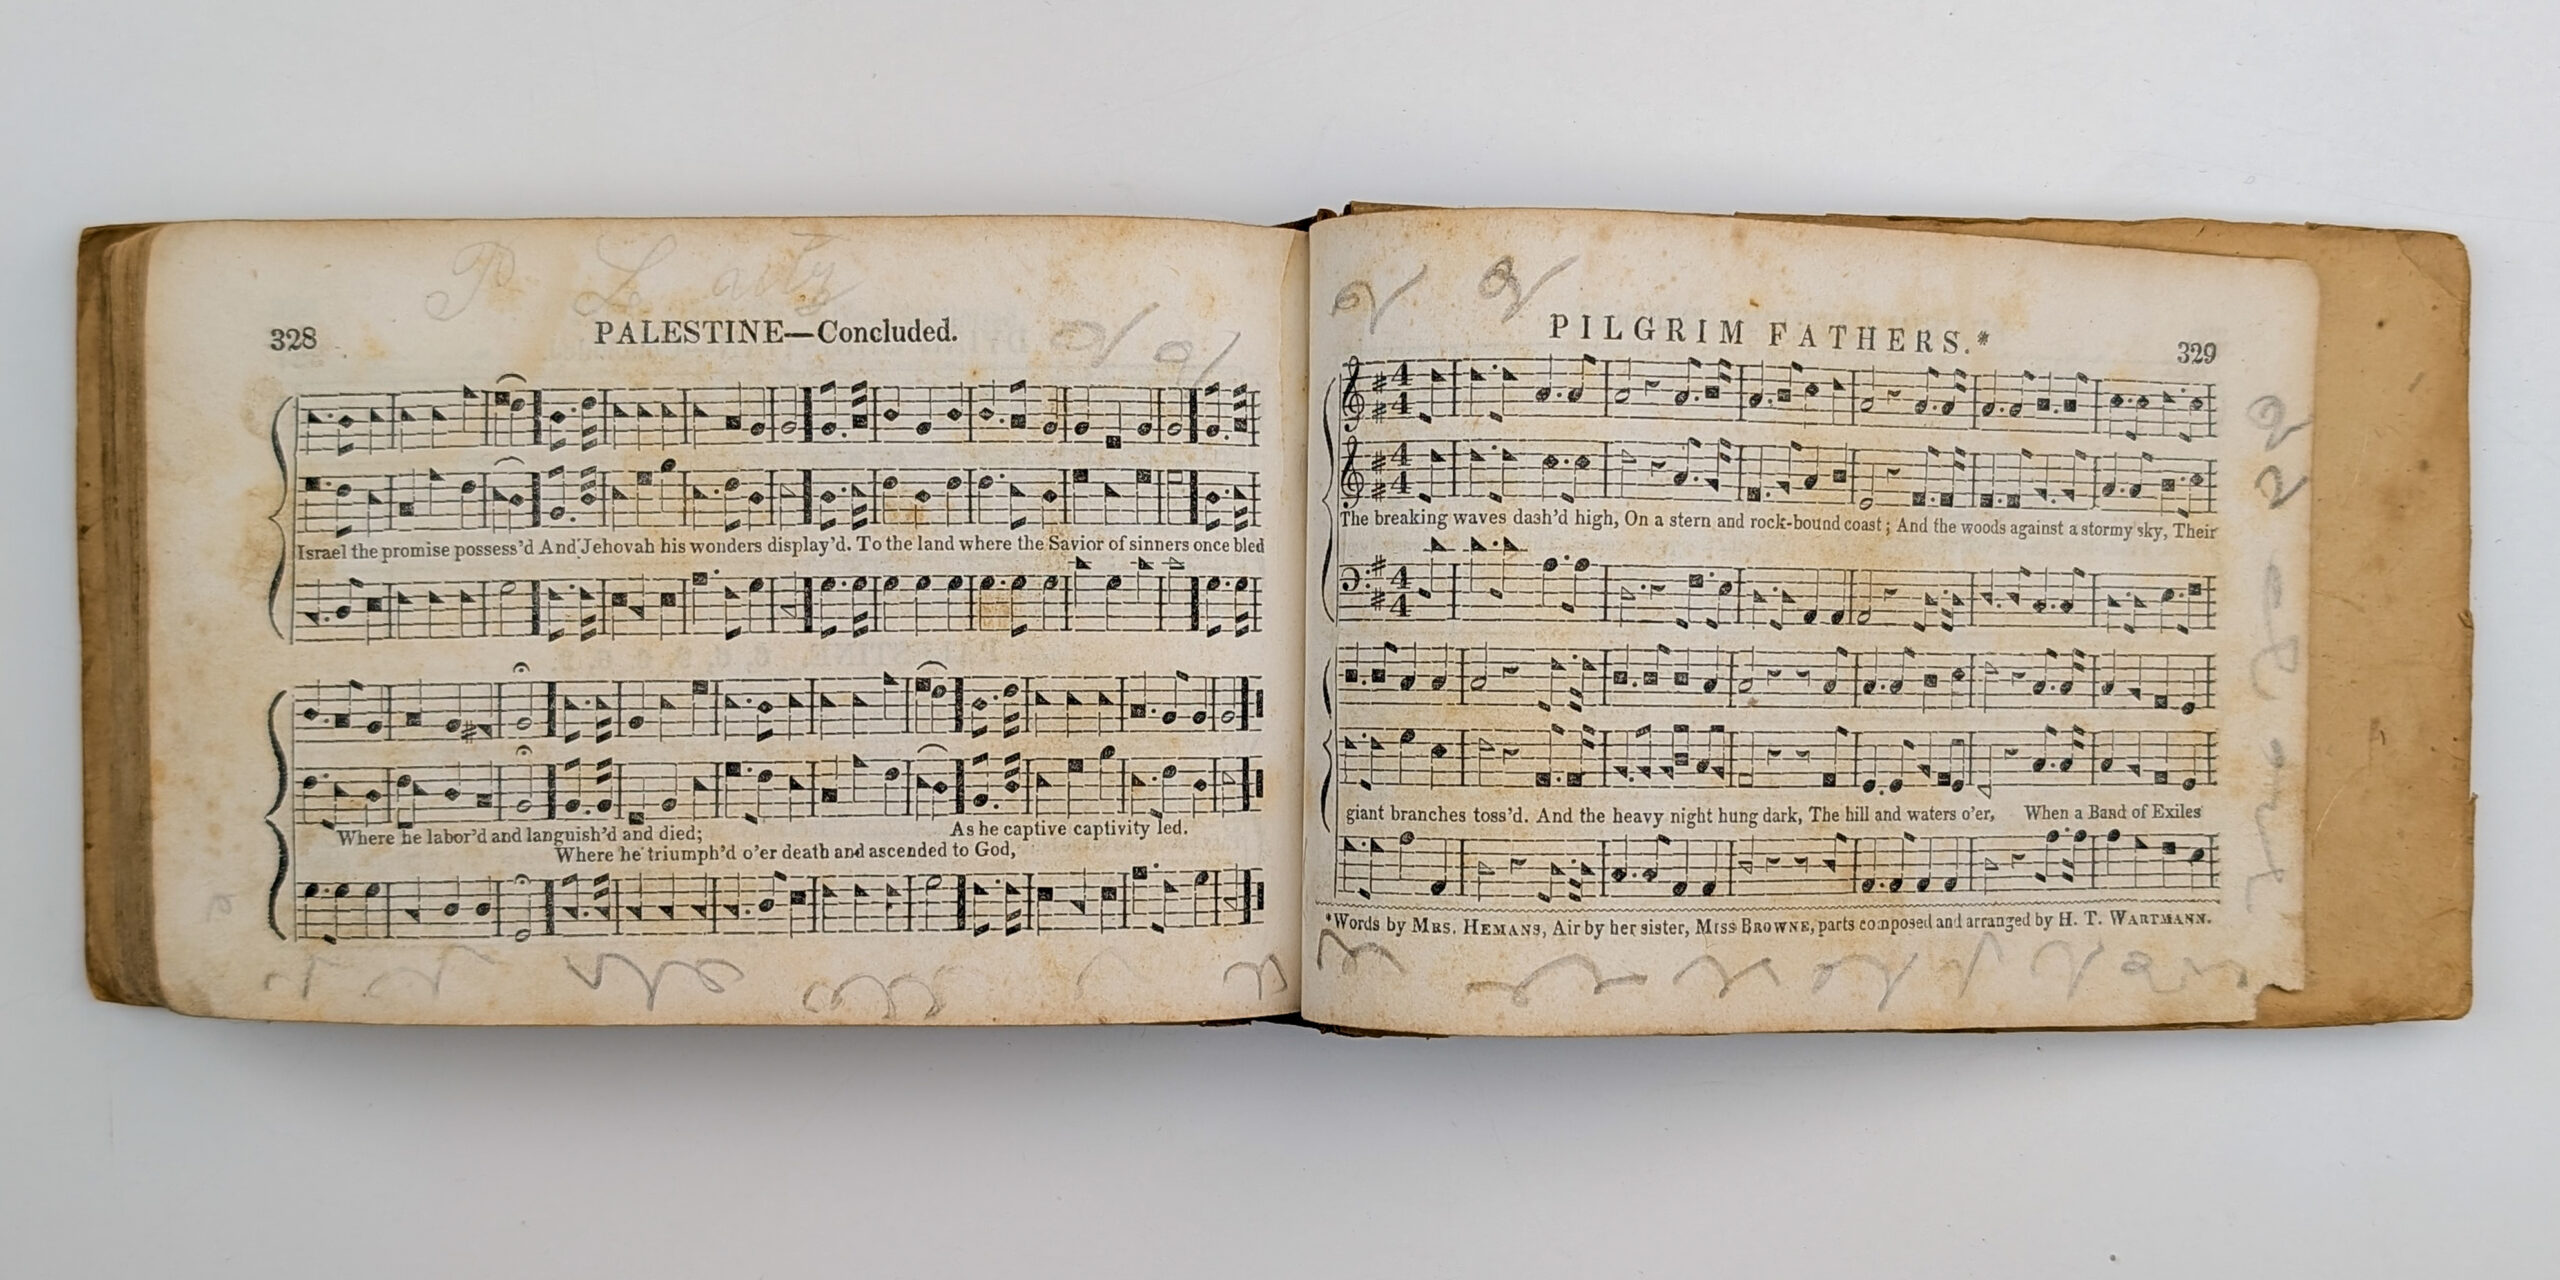 328
PALESTINE—Concluded.
Israel the promise possess'd And Jehovah his wonders display'd. To the land where the Savior of sinners once bled
Where he labor'd and languish'd and died;
As he captive captivity led.
Where he triumph'd o'er death and ascended to God,
PILGRIM FATHERS.*
329
The breaking waves dash'd high, On a stern and rock-bound coast; And the woods against a stormy sky, Their
giant branches toss'd. And the heavy night hung dark, The hill and waters o'er, When a Band of Exiles
*Words by MRS. HEMANS, Air by her sister, MISS BROWNE, parts composed and arranged by H. T. WARTMANN.